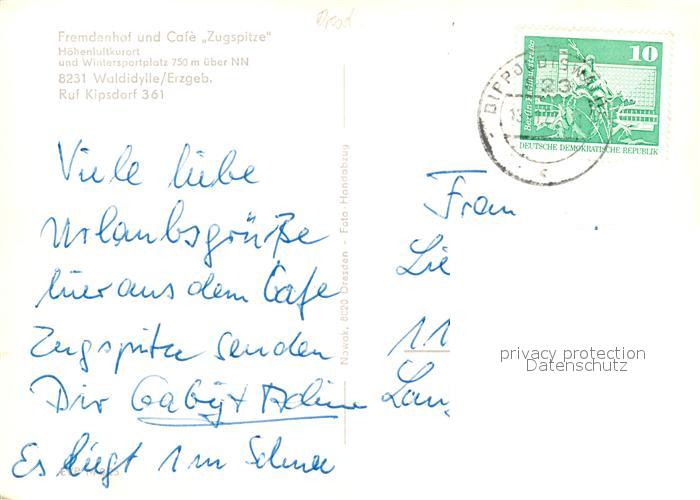 Fremdenhof und Cafè „Zugspitze"
Höhenluftkurort
und Wintersportplatz 750 m über NN
8231 Waldidylle/Erzgeb.
Ruf Kipsdorf 361
10
DEUTSCHE DEMOKRATISCHE REPUBLIK
Viele liebe
Urlaubsgrüße
hier aus dem Cafe
Zugspitze senden
Dir Gaby +
Es liegt 1 m Schnee
Nowak, 8020 Dresden - Foto Handabzug
Frau
Lie
11
privacy protection
Datenschutz